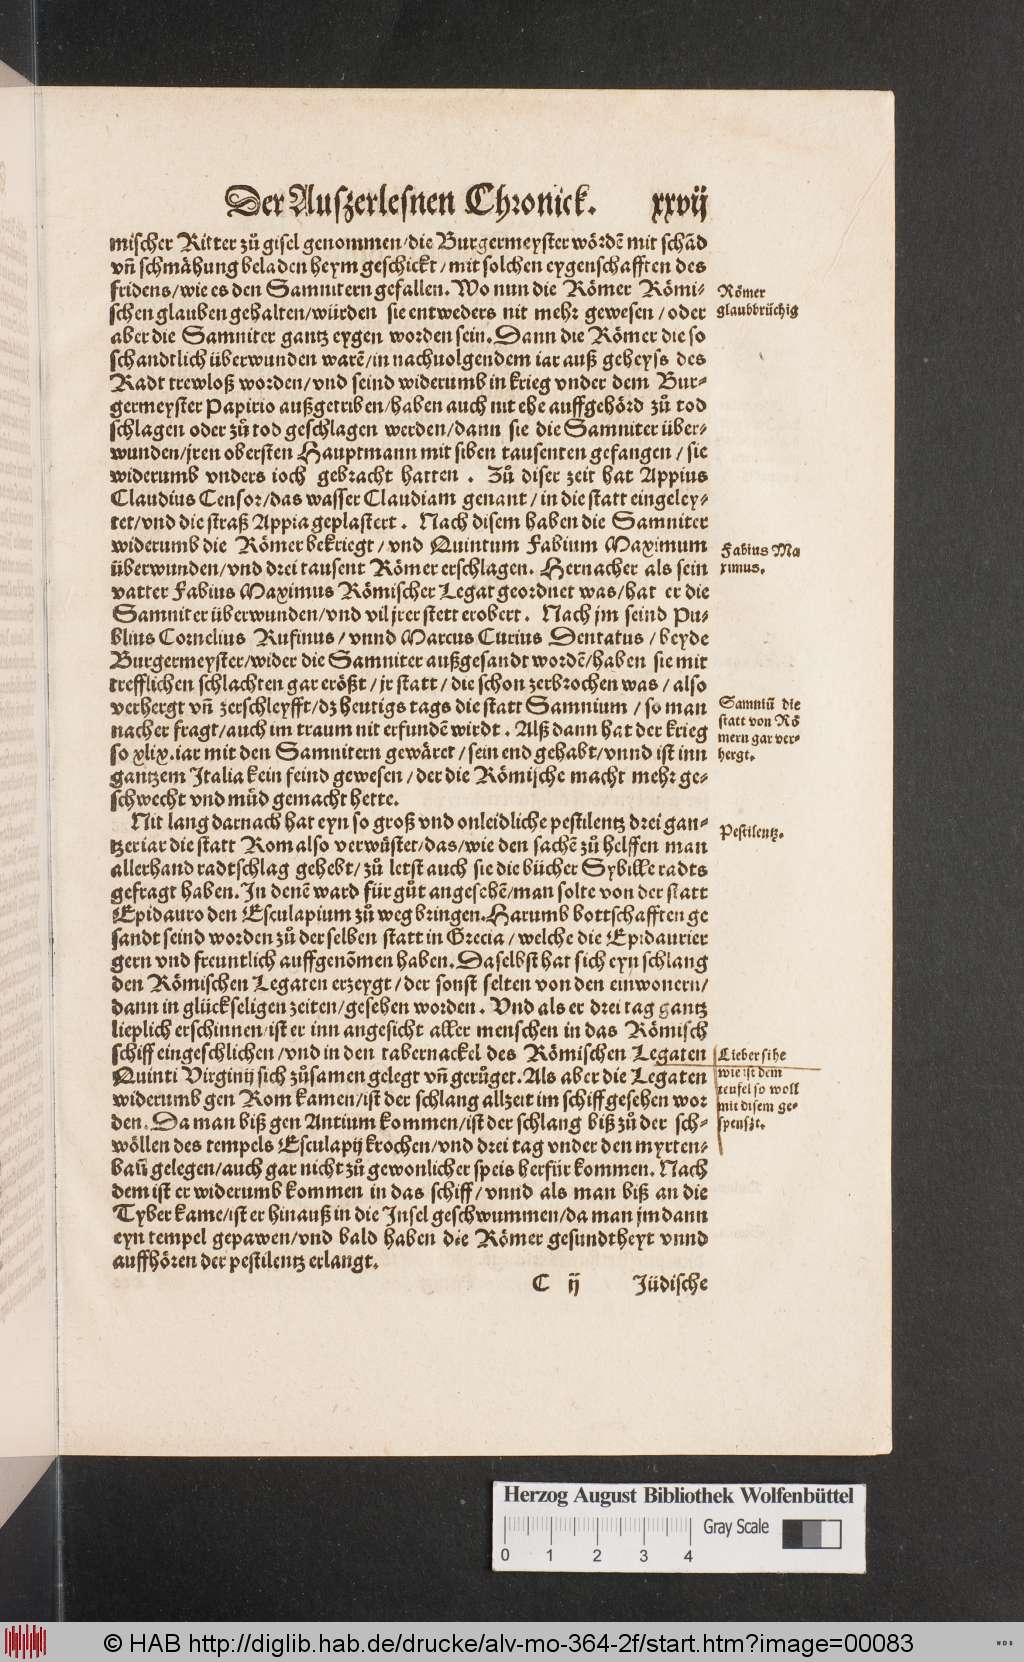 Der Auszerlesnen Chronick. xxvij
mischer Ritter zů gisel genommen/die Burgermeyster wördē mit schād
vñ schmähung beladen heym geschickt/mit solchen eygenschafften des
fridens/wie es den Samnitern gefallen. Wo nun die Römer Römi-
schen glauben gehalten/würden sie entweders nit mehr gewesen/oder
aber die Samniter gantz eygen worden sein. Dann die Römer die so
schandtlich überwunden warē/in nachuolgendem iar auß geheyss des
Radt trewloß worden/vnd seind widerumb in krieg vnder dem Bur-
germeyster Papirio außgetriben/haben auch nit ehe auffgehörd zů tod
schlagen oder zů tod geschlagen werden/dann sie die Samniter über-
wunden/jren obersten Hauptmann mit siben tausenten gefangen/sie
widerumb vnders ioch gebracht hatten. Zů diser zeit hat Appius
Claudius Censor/das wasser Claudiam genant/in die statt eingeley-
tet/vnd die straß Appia geplastert. Nach disem haben die Samniter
widerumb die Römer bekriegt/vnd Quintum Fabium Maximum
überwunden/vnd drei tausent Römer erschlagen. Hernacher als sein
vatter Fabius Maximus Römischer Legat geordnet was/hat er die
Samniter überwunden/vnd vil jrer stett erobert. Nach jm seind Pu-
blius Cornelius Rufinus/vnnd Marcus Curius Dentatus/beyde
Burgermeyster/wider die Samniter außgesandt wordē/haben sie mit
trefflichen schlachten gar erößt/jr statt/die schon zerbrochen was/also
verhergt vñ zerschleyfft/dz heutigs tags die statt Samnium/so man
nacher fragt/auch im traum nit erfundē wirdt. Alß dann hat der krieg
so xlix. iar mit den Samnitern gewäret/sein end gehabt/vnnd ist inn
gantzem Italia kein feind gewesen/der die Römische macht mehr ge-
schwecht vnd müd gemacht hette.
Nit lang darnach hat eyn so groß vnd onleidliche pestilentz drei gan-
tzer iar die statt Rom also verwüstet/das/wie den sachē zů helffen man
allerhand radtschlag gehebt/zů letst auch sie die bücher Sybille radts
gefragt haben. In denē ward für gůt angesehē/man solte von der statt
Epidauro den Esculapium zů weg bringen. Harumb bottschafften ge
sandt seind worden zů der selben statt in Grecia/welche die Epidaurier
gern vnd freuntlich auffgenōmen haben. Daselbst hat sich eyn schlang
den Römischen Legaten erzeygt/der sonst selten von den einwonern/
dann in glückseligen zeiten/gesehen worden. Vnd als er drei tag gantz
lieplich erschinnen/ist er inn angesicht aller menschen in das Römisch
schiff eingeschlichen/vnd in den tabernackel des Römischen Legaten
Quinti Virginij sich zůsamen gelegt vñ gerůget. Als aber die Legaten
widerumb gen Rom kamen/ist der schlang allzeit im schiff gesehen wor
den. Da man biß gen Antium kommen/ist der schlang biß zů der sch-
wöllen des tempels Esculapij krochen/vnd drei tag vnder den myrten-
baū gelegen/auch gar nicht zů gewonlicher speis herfür kommen. Nach
dem ist er widerumb kommen in das schiff/vnnd als man biß an die
Tyber kame/ist er hinauß in die Insel geschwummen/da man jm dann
eyn tempel gepawen/vnd bald haben die Römer gesundtheyt vnnd
auffhören der pestilentz erlangt.
C ij Jüdische
Römer
glaubbrüchig
Fabius Ma
ximus.
Samniū die
statt von Rö
mern gar ver-
hergt.
Pestilentz.
Lieber sihe
wie ist dem
teufel so woll
mit disem ge-
spenszt.
Herzog August Bibliothek Wolfenbüttel
Gray Scale
0 1 2 3 4
© HAB http://diglib.hab.de/drucke/alv-mo-364-2f/start.htm?image=00083